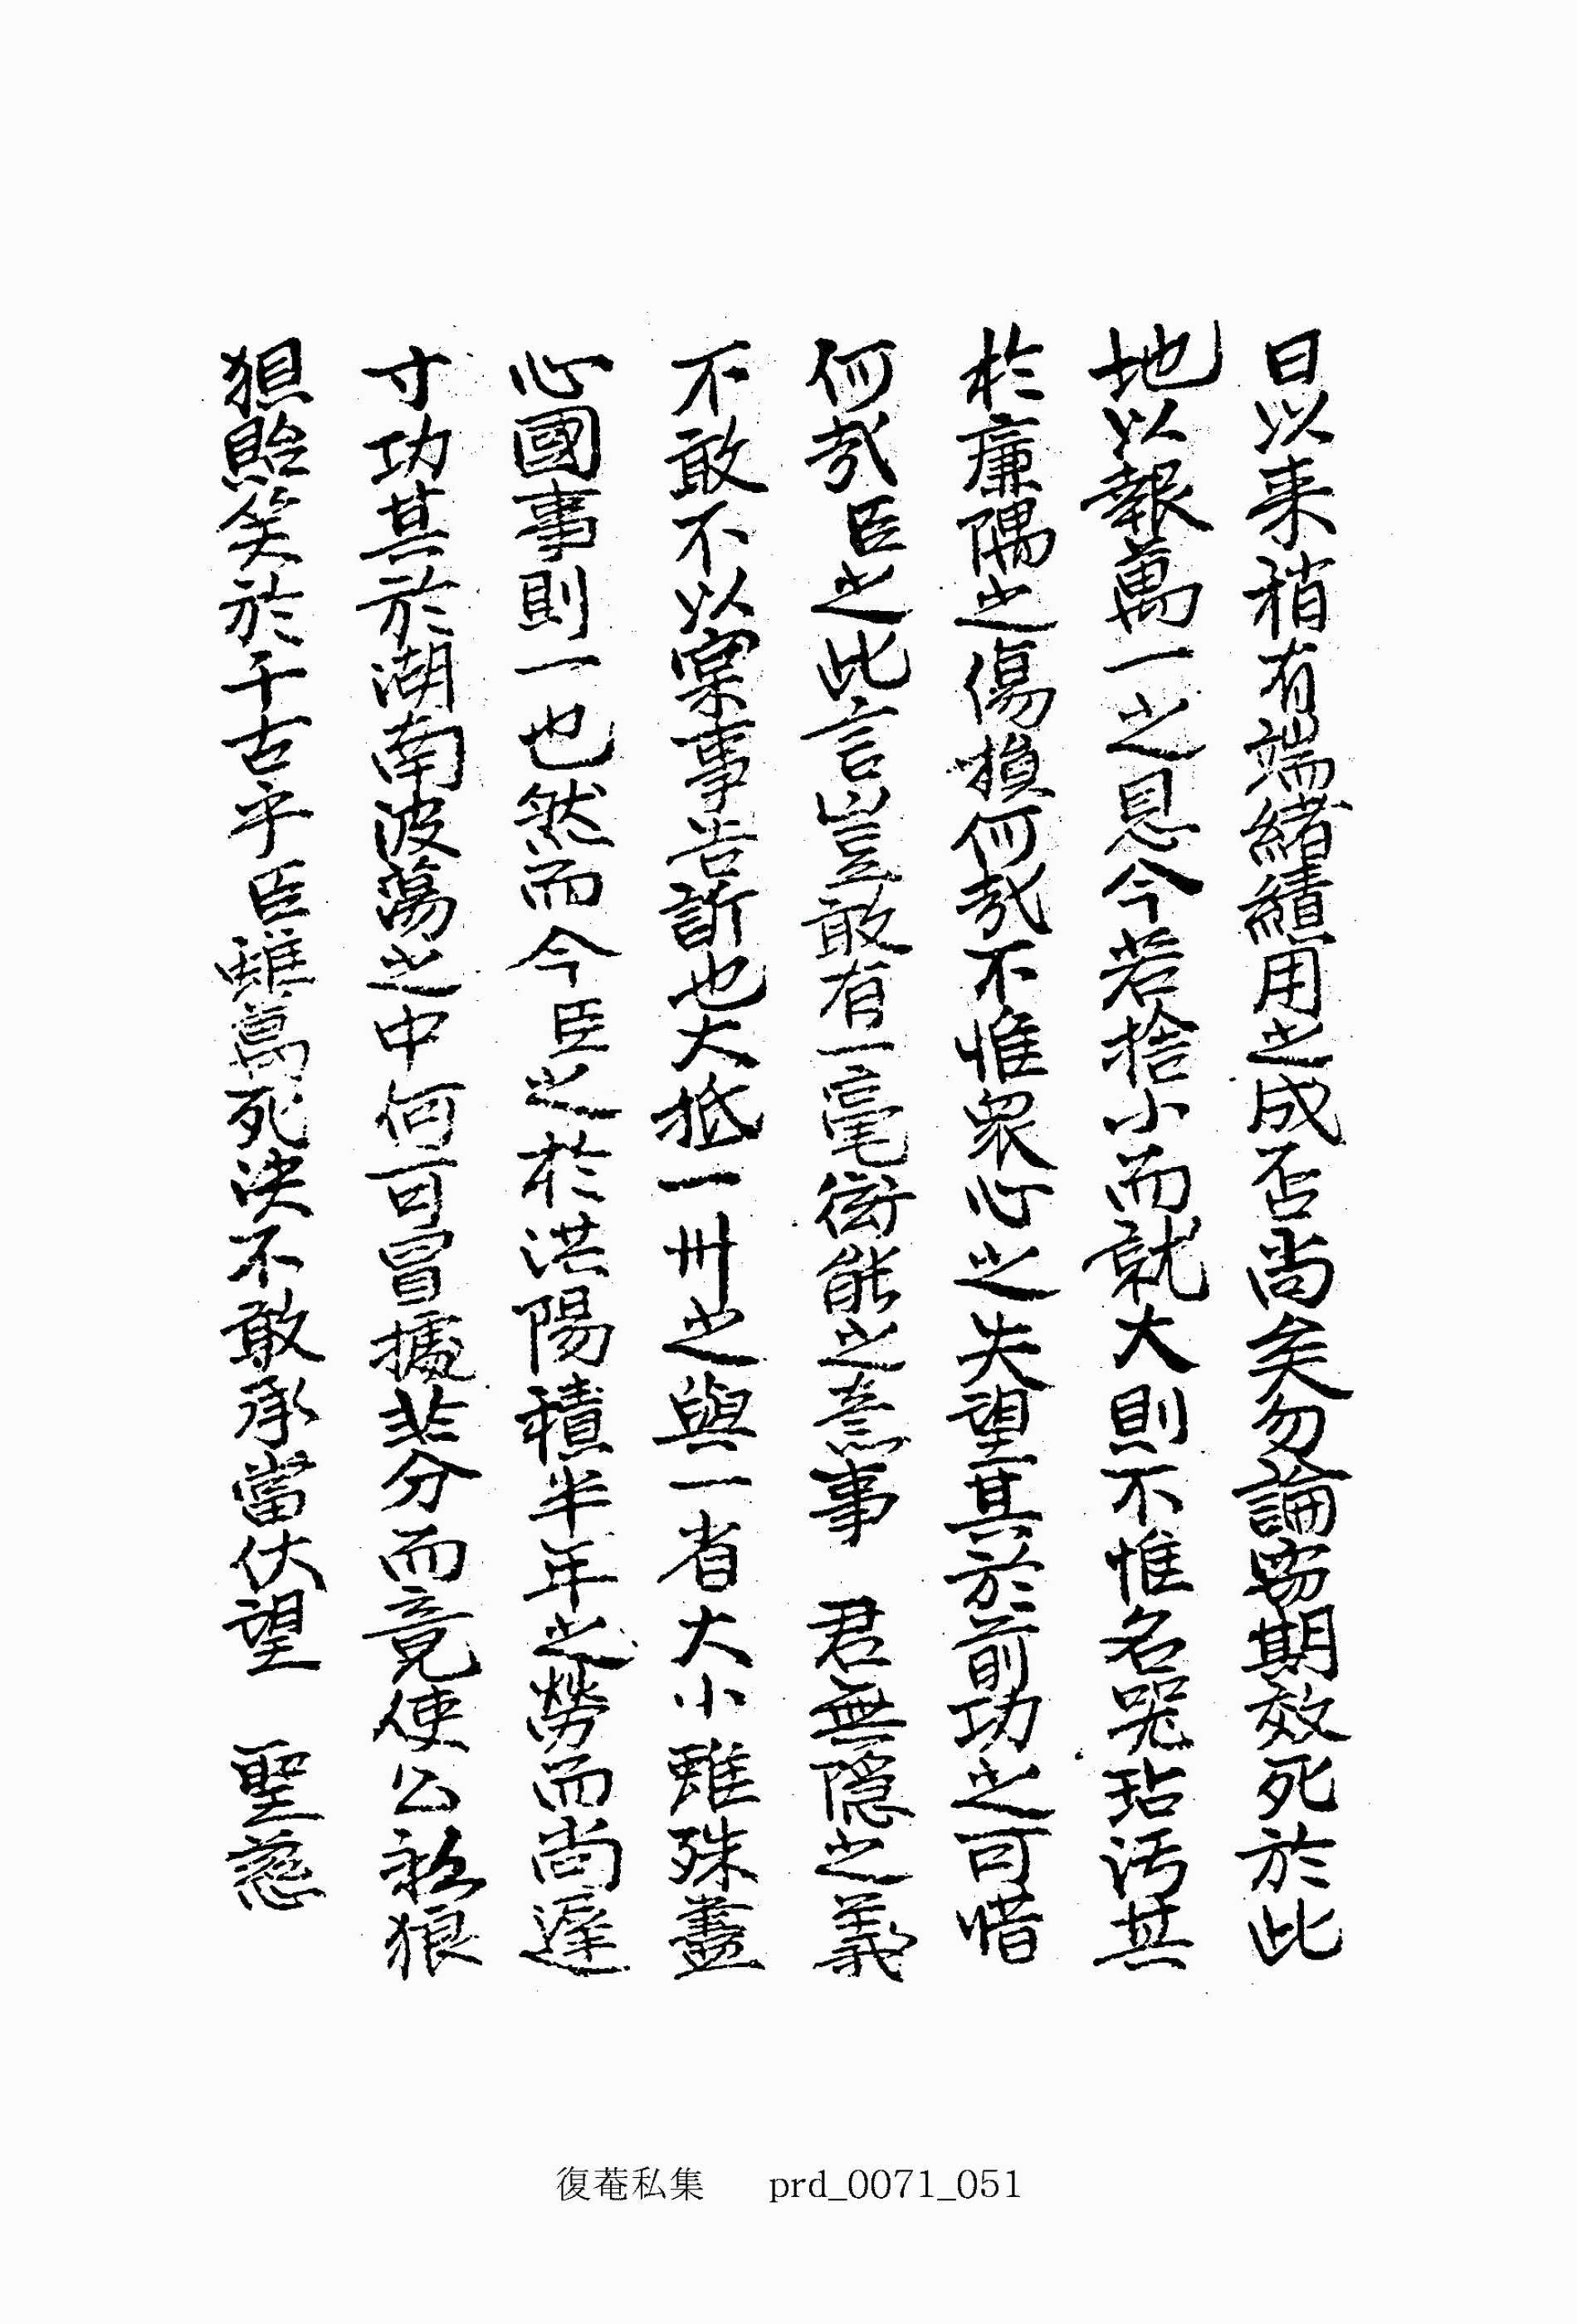 日以来稍有端緖績用之成否尚矣勿論要期效死於此
地以報萬一之恩今若捨小而就大則不惟名器玷汚其
於廉隅之傷損何哉不惟衆心之失望其於前功之可惜
何哉臣之此言豈敢有一毫衒能之意事 君無隱之義
不敢不以實事告訴也大抵一州之與一省大小雖殊盡
心國事則一也然而今臣之於洪陽積半年之勞而尚遲
寸功其於湖南波蕩之中何可冒據非分而竟使公私狼
狽貽笑於千古乎臣雖萬死決不敢承當伏望 聖慈
復菴私集 prd_0071_051